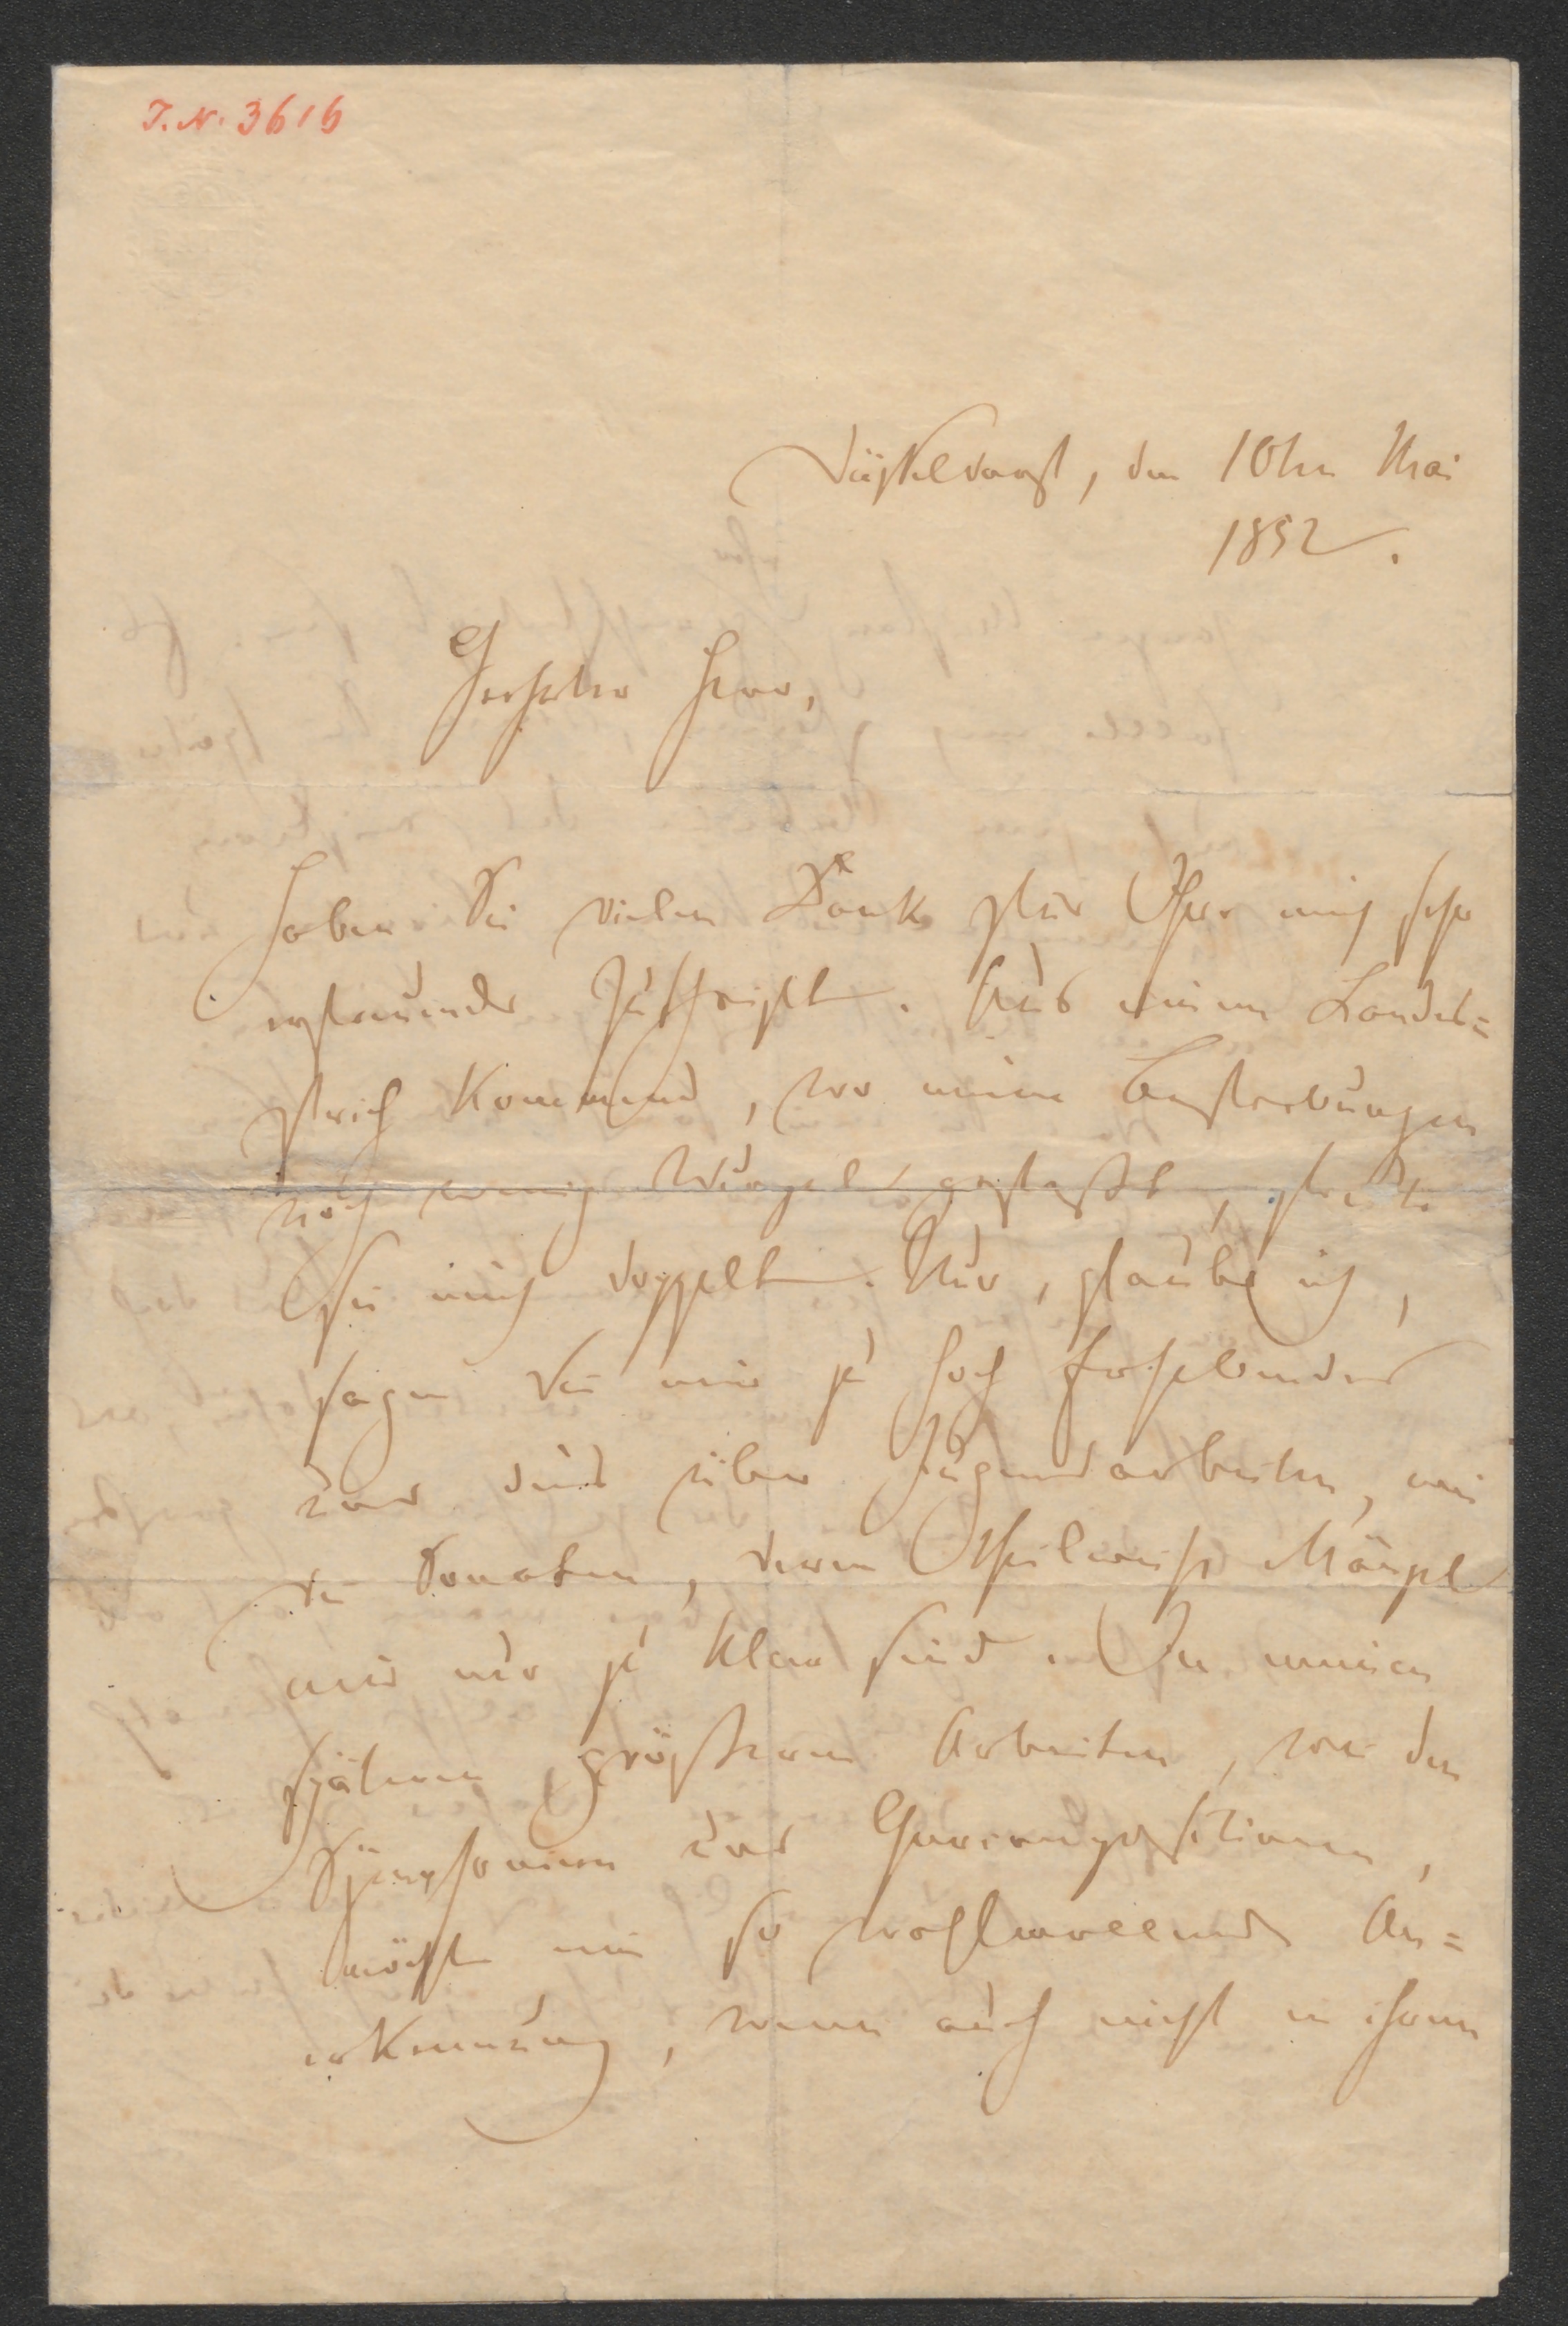 I. N. 3616
Düsseldorf, den 10ten Mai
1852.
Geehrter Herr,
Haben Sie vielen Dank für Ihre mich sehr
erfreuende Zuschrift. Aus einem Landes=
strich kommend, wo meine Bestrebungen
noch wenig Wurzel gefaßt, freute
sie mich doppelt. Nur, glaube ich,
sagen Sie mir zu hoch Erhebendes
und dies über Jugendarbeiten, wie
die Sonaten, deren theilweise Mängel
mir nur zu klar sind. In meinen
spätern, größeren Arbeiten, wie den
Symphonien und Chorcompositionen,
möchte eine so wohlwollende An=
erkennung, wenn auch nicht in ihrem